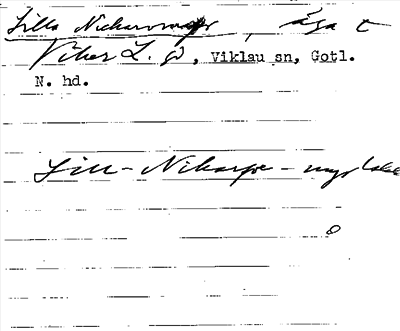 Lilla Nickarvemyr, äga t
Viber L. 9, Viklau sn, Gotl.
N. hd.
Lill-Nikarve-myr